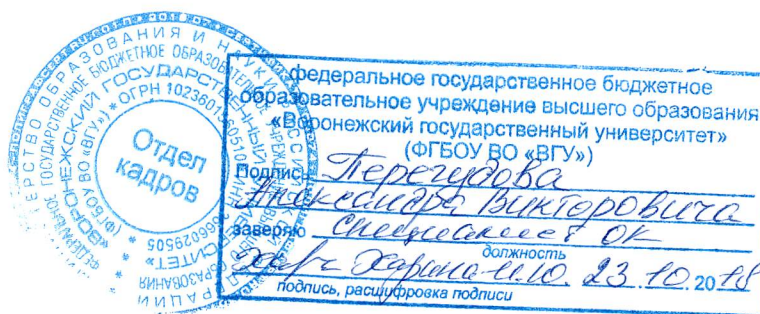 МИНИСТЕРСТВО ОБРАЗОВАНИЯ И НАУКИ РОССИЙСКОЙ ФЕДЕРАЦИИ
ФЕДЕРАЛЬНОЕ ГОСУДАРСТВЕННОЕ БЮДЖЕТНОЕ ОБРАЗОВАТЕЛЬНОЕ УЧРЕЖДЕНИЕ ОБРАЗОВАНИЯ
«ВОРОНЕЖСКИЙ ГОСУДАРСТВЕННЫЙ УНИВЕРСИТЕТ»
(ФГБОУ ВО «ВГУ») * ОГРН
Отдел
кадров
федеральное государственное бюджетное
образовательное учреждение высшего образования
«Воронежский государственный университет»
(ФГБОУ ВО «ВГУ»)
Подпись Перегудова
Александра Викторовича
заверяю специалист ОК
должность
Харина И.Ю. 23.10.2018
подпись, расшифровка подписи